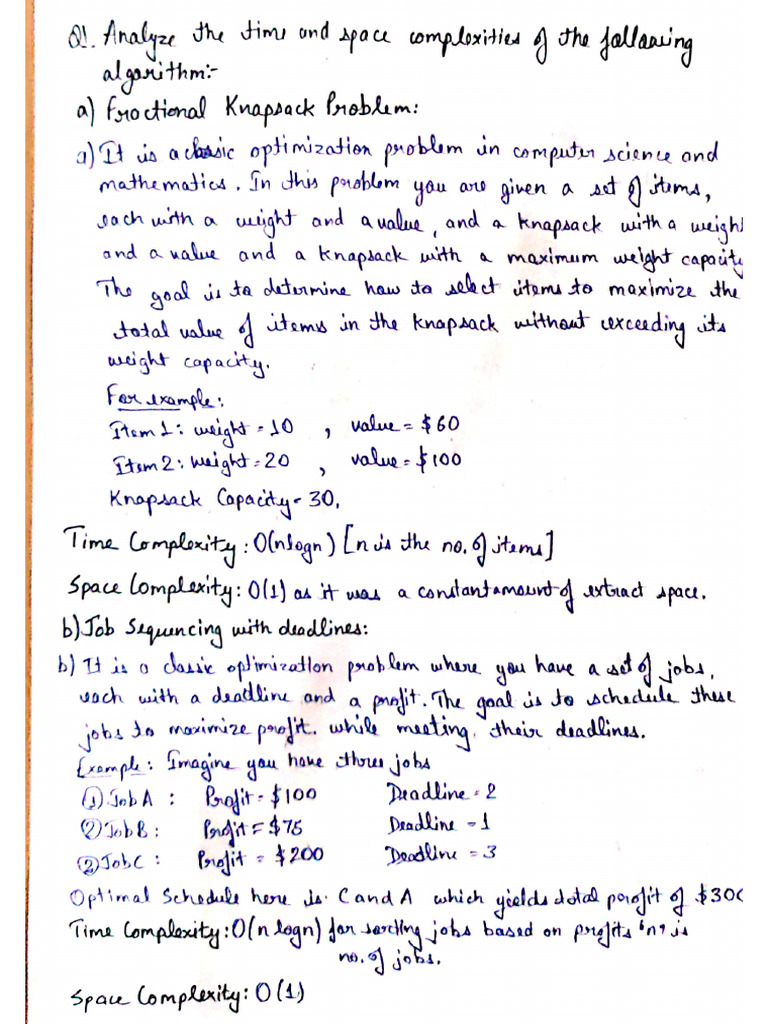 Q1. Analyze the time and space complexities of the following
algorithm:-
a) Fractional Knapsack Problem:
a) It is a classic optimization problem in computer science and
mathematics. In this problem you are given a set of items,
each with a weight and a value, and a knapsack with a weight
and a value and a knapsack with a maximum weight capacity
The goal is to determine how to select items to maximize the
total value of items in the knapsack without exceeding its
weight capacity.
For example:
Item 1: weight = 10 , value = $60
Item 2: weight = 20 , value = $100
Knapsack Capacity - 30.
Time Complexity: O(nlogn) [n is the no. of items]
Space Complexity: O(1) as it was a constant amount of extract space.
b) Job Sequencing with deadlines:
b) It is a classic optimization problem where you have a set of jobs,
each with a deadline and a profit. The goal is to schedule these
jobs to maximize profit. while meeting, their deadlines.
Example: Imagine you have three jobs
① Job A : Profit = $100 Deadline = 2
② Job B : Profit = $75 Deadline - 1
② Job C : Profit = $200 Deadline = 3
Optimal Schedule here is. C and A which yields total profit of $300
Time Complexity: O(n logn) for sorting jobs based on profits 'n' is
no. of jobs.
Space Complexity: O(1)